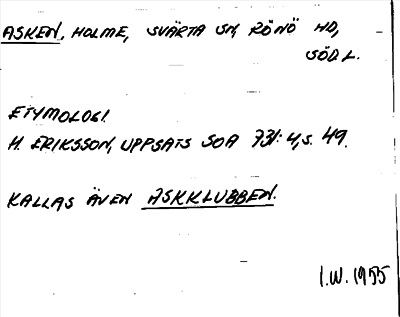 ASKEN, HOLME, SVÄRTA SN, RÖNÖ HD,
SÖDL.
ETYMOLOGI
H. ERIKSSON, UPPSATS SOA 731:4, S. 49.
KALLAS ÄVEN ASKKLUBBEN.
I.W. 1955